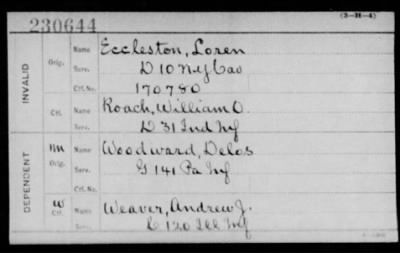 230644 (3-H-4)
INVALID Orig. Name Eccleston, Loren
Serv. D 10 N.Y. Cav
Ctf. No. 170780
Ctf. Name Roach, William O.
Serv. D 31 Ind Inf
DEPENDENT M Orig. Name Woodward, Delos
Serv. G 141 Pa Inf
Ctf. No.
W Ctf. Name Weaver, Andrew J.
Serv. C 120 Ill Inf